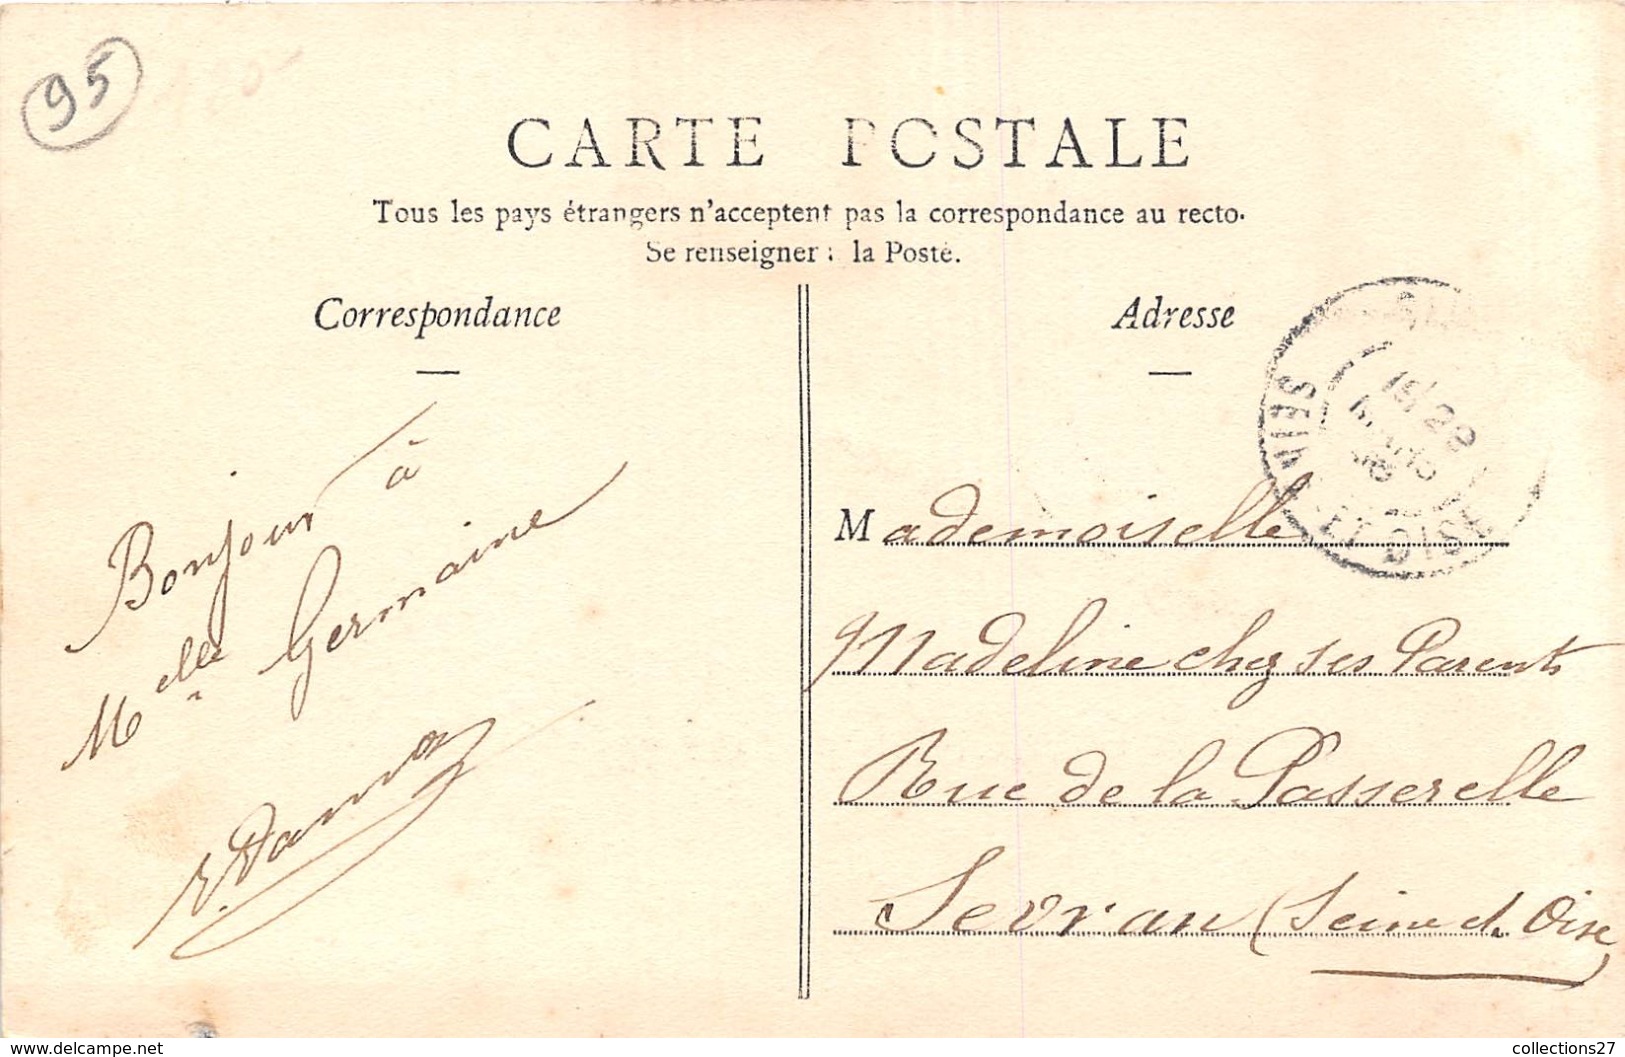 95
CARTE POSTALE
Tous les pays étrangers n'acceptent pas la correspondance au recto.
Se renseigner à la Poste.
Correspondance
Adresse
Bonjour à
Melle Germaine
SEINE ET OISE
Mademoiselle
Madeline chez ses Parents
Rue de la Passerelle
Sevran (Seine et Oise
https://www.delcampe.net
collections27